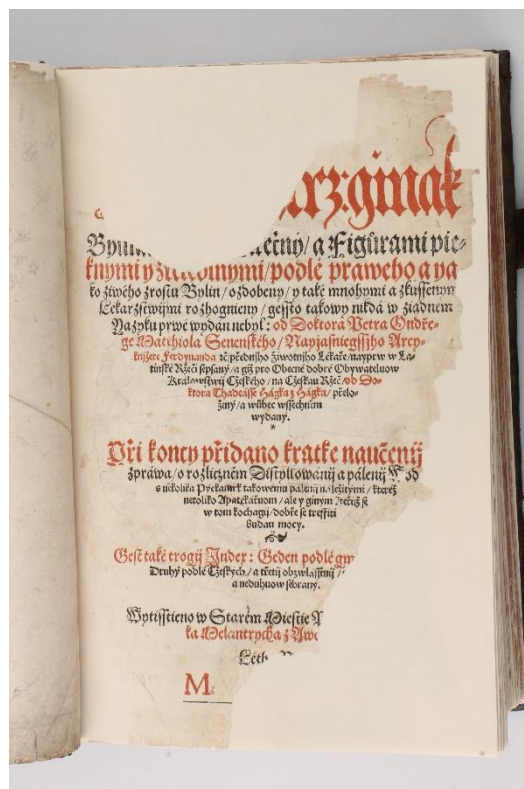 arz:ginák
užitečný / a Figůrami pie-
knými y zřetedlnými / podlé praweho a ya
ko žiwého zrostu Bylin / ozdobený / y také mnohými a zkussenými
Lékařstwijmi rozhogniený / gessto takowý nikdá w žiádném
Yazyku prwé wydán nebyl: od Doktora Petra Ondře-
ge Matthiola Senenského / Nayjasniegssýho Arcy-
knijžete Ferdynanda předního žiwotnijho Lékaře / nayprw w La-
tinské Ržeči sepsaný / a giž pro Obecné dobré Obywateluow
Králowstwij Cžeského / na Cžeskau Ržeč / od Do-
ktora Thadeásse Hágka z Hágku / přelo-
žený / a wůbec wssechněm
wydaný.
Při koncy přidáno krátké naučenij
zpráwa / o rozličném Distyllowánij a pálenij Wod
s několika Pýckami k takowému pálenij náležitými / kteréž
netoliko Apatekářuom / ale y giným
w tom kochagij / dobře se treffiti
budau mocy.
Gest také trogij Index: Geden podlé
Druhý podlé Cžeských / a třetij obzwlásstnij /
a neduhuow sebraný.
Wytisstieno w Starém Miestie
ka Melantrycha z Awe
Léth
M.